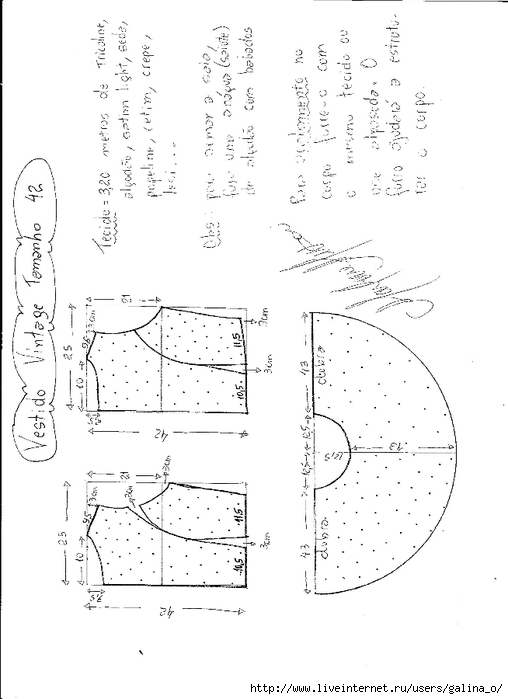 Vestido Vintage Tamanho 42
Tecido = 3,20 metros de tricoline,
algodão, cetim light, seda,
popeline, cetim, crepe,
Obs: para armar a saia,
faça uma anágua (saiote)
de algodão com babados
Para acabamento no
corpo forre-o com
o mesmo tecido ou
use entretela. O
forro ajudará a estrutu-
rar o corpo.
25
10
9,5
3cm
21
42
10,5
11,5
3cm
7cm
25
10
9,5
3cm
21
2cm
3cm
7,5
42
10,5
11,5
3cm
43
12,5
12,5
43
dobra
dobra
12,5
http://www.liveinternet.ru/users/galina_o/